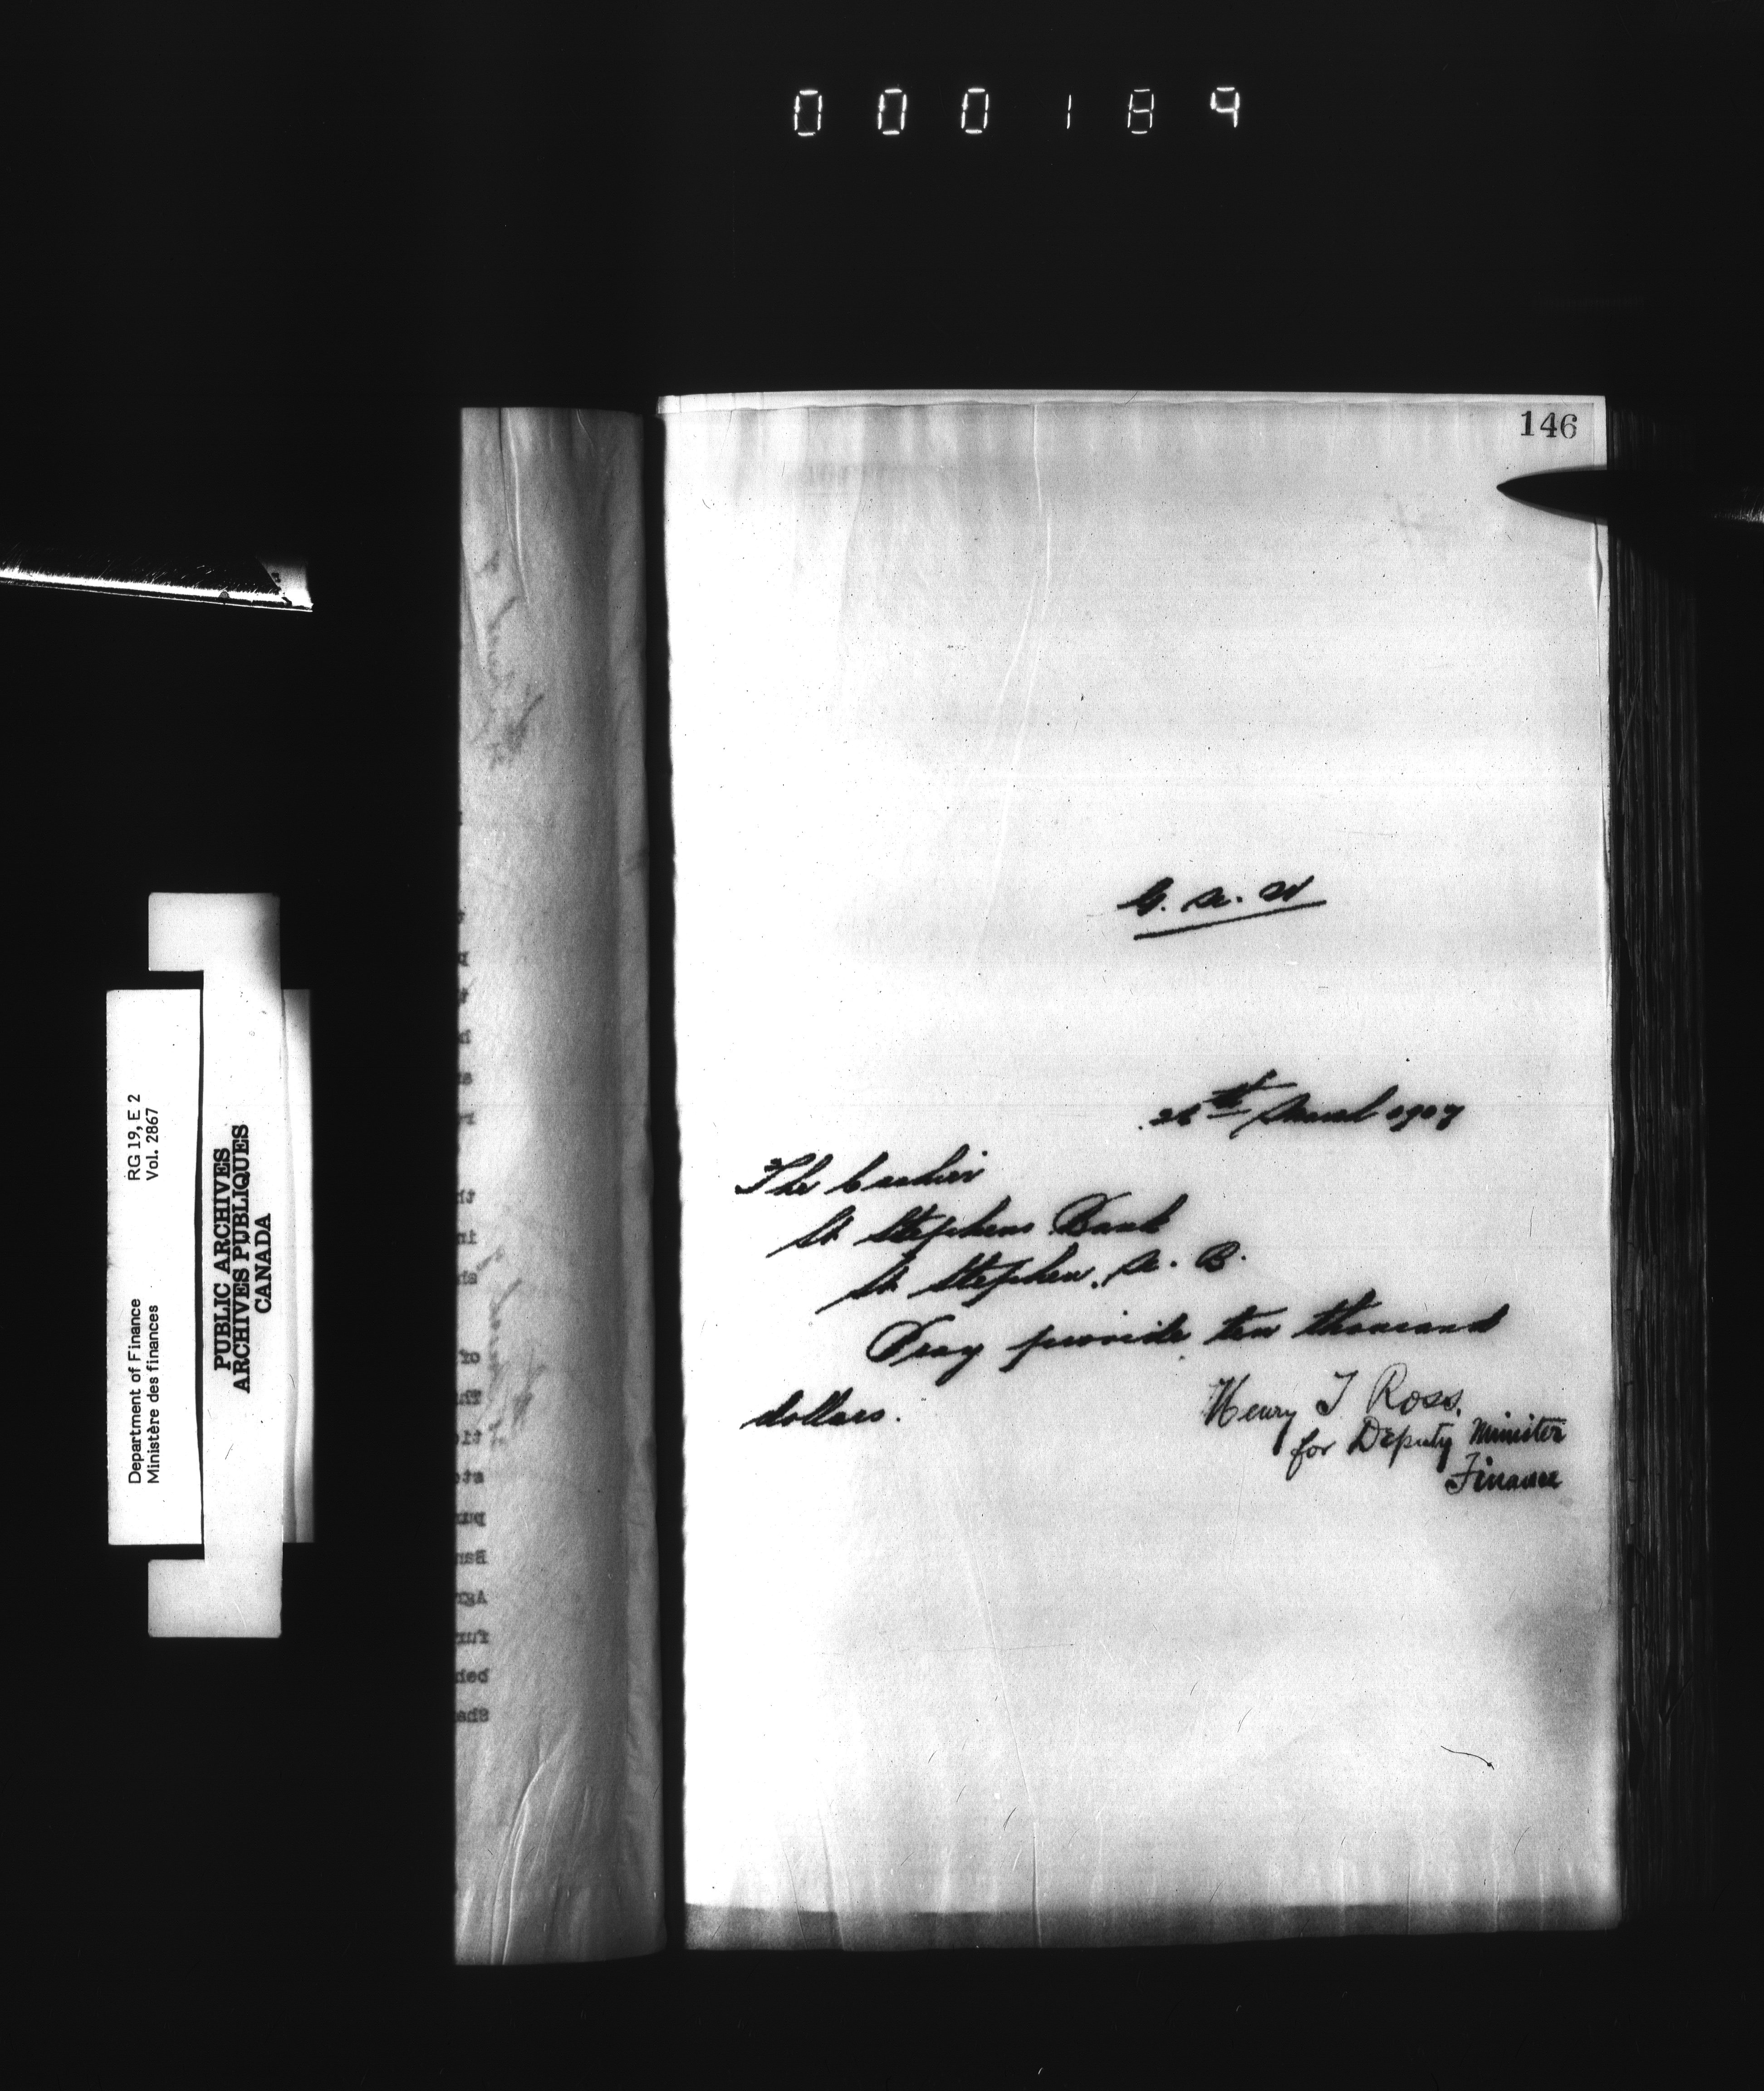 000189
146
G. N. W
26th March 1907
The Cashier
St Stephens Bank
St Stephen, N. B.
Pray provide ten thousand
dollars.
Henry T Ross.
for Deputy Minister
Finance
Department of Finance RG 19, E 2
Ministère des finances Vol. 2867
PUBLIC ARCHIVES
ARCHIVES PUBLIQUES
CANADA